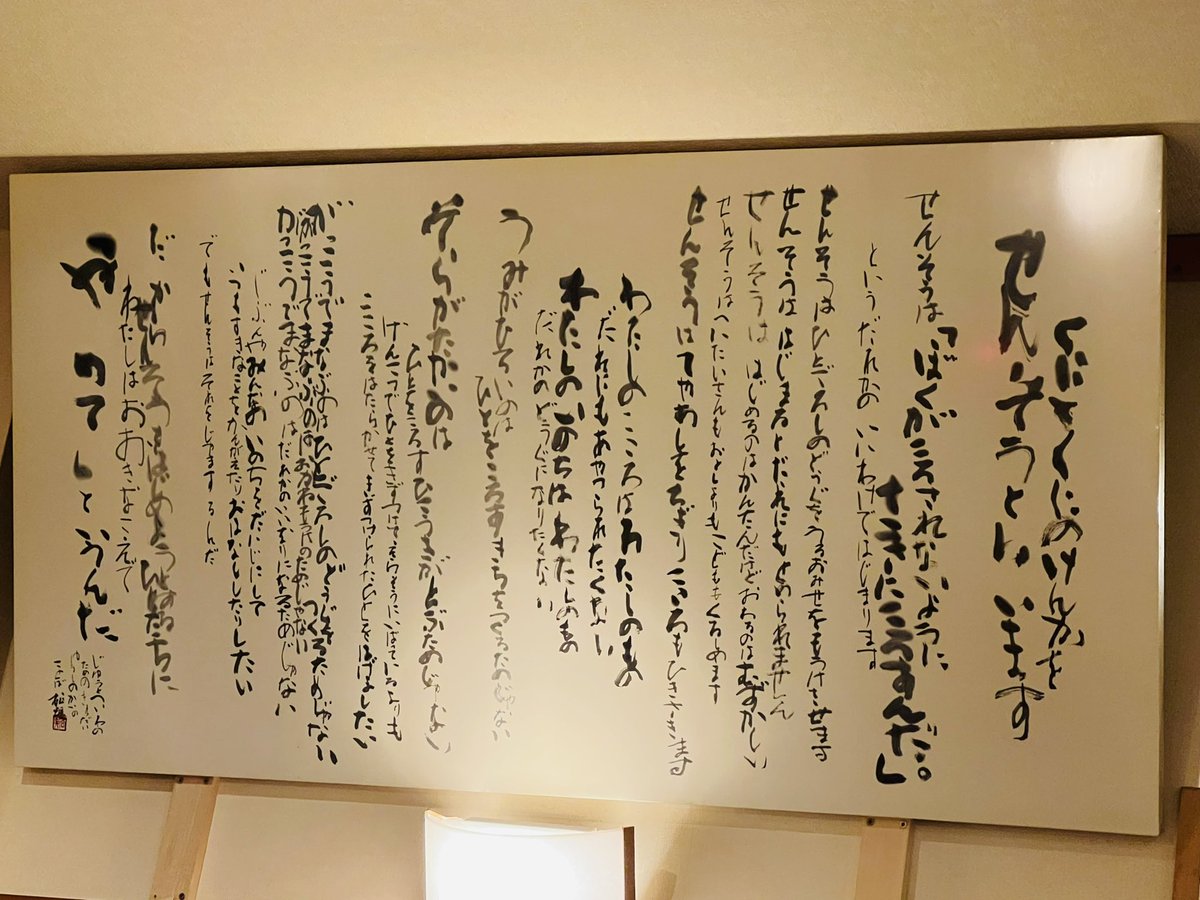 くにとくにのけんかを
せんそうといいます
せんそうは「ぼくがころされないように
さきにころすんだ。」
というだれかの いいわけではじまります
せんそうはひとごろしのどうぐをうるおみせをもうけさせます
せんそうは はじまるとだれにもとめられません
せんそうは はじめるのはかんたんだけど おわるのはむずかしい
せんそうはへいたいさんもおとしよりもこどももくるしめます
せんそうは てやあしをちぎり こころもひきさきます
わたしのこころは わたしのもの
だれにもあやつられたくない
わたしのいのちは わたしのもの
だれかのどうぐになりたくない
うみがひろいのは
ひとをころすきちをつくるためじゃない
そらがたかいのは
ひとをころすひこうきがとぶためじゃない
げんこつでひとをきずつけて えらそうにいばっているよりも
こころをはたらかせて きずつけられたひとをはげましたい
がっこうでまなぶのは ひとごろしのどうぐをつくるためじゃない
がっこうでまなぶのは おかねもうけのためじゃない
がっこうでまなぶのは だれかのいいなりになるためじゃない
じぶんやみんなの いのちをだいじにして
いつもすきなことをかんがえたり おはなししたりしたい
でも せんそうはそれをじゃまするんだ
だからせんそうをはじめようとするひとたちに
わたしはおおきなこえで
やめて」というんだ
じゆうとへいわの
ための